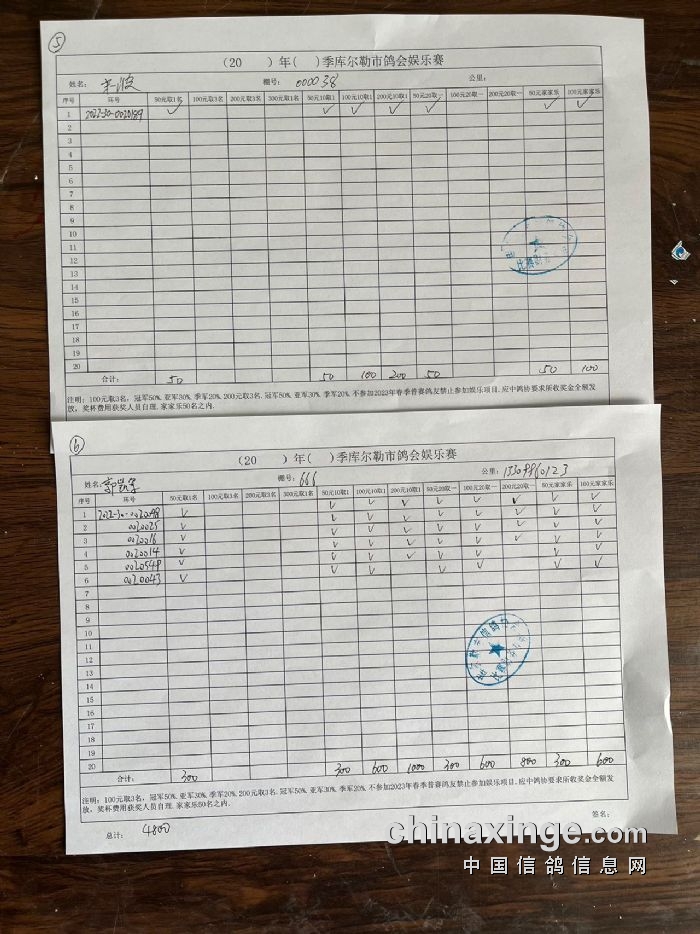 ⑤
（20　　）年（　）季库尔勒市鸽会娱乐赛
姓名： 棚号： 000038 公里：
序号 环号 50元取1名 100元取3名 200元取3名 300元取1名 50元10取1 100元10取1 200元10取1 50元20取一 100元20取一 200元20取一 50元家家乐 100元家家乐
1 2022-30-0020189 ✓ ✓ ✓ ✓ ✓ ✓ ✓
2
3
4
5
6
7
8
9
10
11
12
13
14
15
16
17
18
19
20
合计： 50 50 100 200 50 50 100
注明：100元取3名，冠军50%.亚军30%.季军20%.200元取3名.冠军50%.亚军30%.季军20%.不参加2023年春季普赛鸽友禁止参加娱乐项目.应中鸽协要求所收奖金全额发
放，奖杯费用获奖人员自理.家家乐50名之内.
⑥
（20　　）年（　）季库尔勒市鸽会娱乐赛
姓名： 棚号： 666 公里： 13309960123
序号 环号 50元取1名 100元取3名 200元取3名 300元取1名 50元10取1 100元10取1 200元10取1 50元20取一 100元20取一 200元20取一 50元家家乐 100元家家乐
1 2022-30-0020098 ✓ ✓ ✓ ✓ ✓ ✓ ✓ ✓ ✓
2 0020025 ✓ ✓ ✓ ✓ ✓ ✓ ✓ ✓ ✓
3 0020016 ✓ ✓ ✓ ✓ ✓ ✓ ✓ ✓ ✓
4 0020014 ✓ ✓ ✓ ✓ ✓ ✓ ✓ ✓ ✓
5 0020549 ✓ ✓ ✓ ✓ ✓ ✓ ✓ ✓
6 0020043 ✓ ✓ ✓ ✓ ✓ ✓ ✓
7
8
9
10
11
12
13
14
15
16
17
18
19
20
合计： 300 300 600 1000 300 600 800 300 600
注明：100元取3名，冠军50%.亚军30%.季军20%.200元取3名.冠军50%.亚军30%.季军20%.不参加2023年春季普赛鸽友禁止参加娱乐项目.应中鸽协要求所收奖金全额发
放，奖杯费用获奖人员自理.家家乐50名之内.
总计： 4800 签名：
chinaxinge.com
中国信鸽信息网